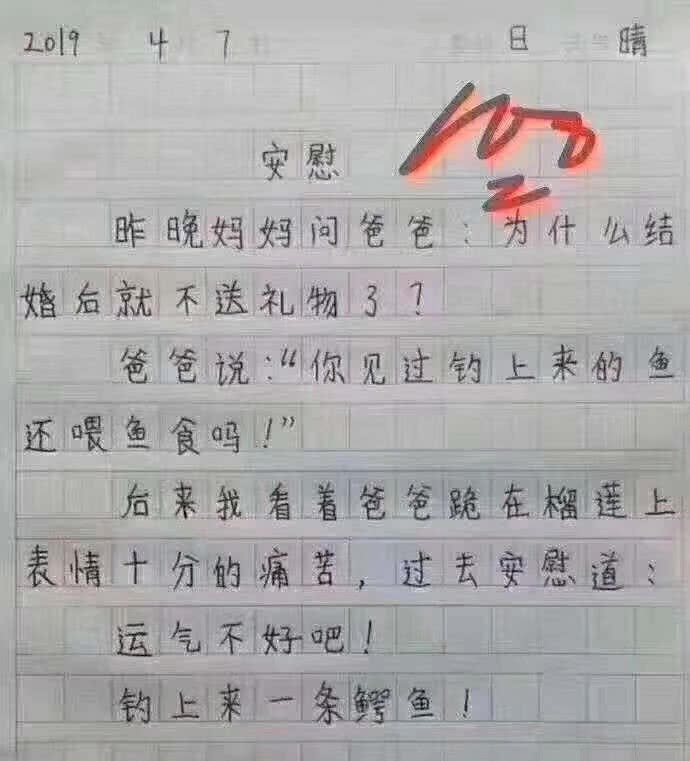 2019 4 7 日 晴
100
安慰
昨晚妈妈问爸爸:为什么结
婚后就不送礼物了?
爸爸说:“你见过钓上来的鱼
还喂鱼食吗!”
后来我看着爸爸跪在榴莲上
表情十分的痛苦,过去安慰道:
运气不好吧!
钓上来一条鳄鱼!